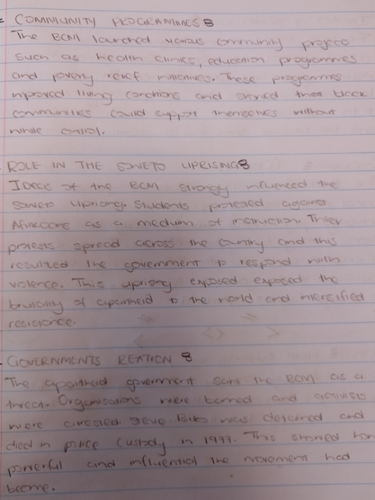 COMMUNITY PROGRAMMES 8
The BCM launched various community projects
such as health clinics, education programmes
and poverty relief initiatives. These programmes
improved living conditions and showed that black
communities could support themselves without
white control.
ROLE IN THE SOWETO UPRISING 8
Ideas of the BCM strongly influenced the
Soweto Uprising. Students protested against
Afrikaans as a medium of instruction. They
protests spread across the country and this
resulted the government to respond with
violence. This uprising exposed exposed the
brutality of apartheid to the world and intensified
resistance.
GOVERNMENTS REATION 8
The apartheid government saw the BCM as a
threat. Organisations were banned and activists
were arrested. Steve Biko was detained and
died in police custody in 1977. This showed how
powerful and influential the movement had
become.